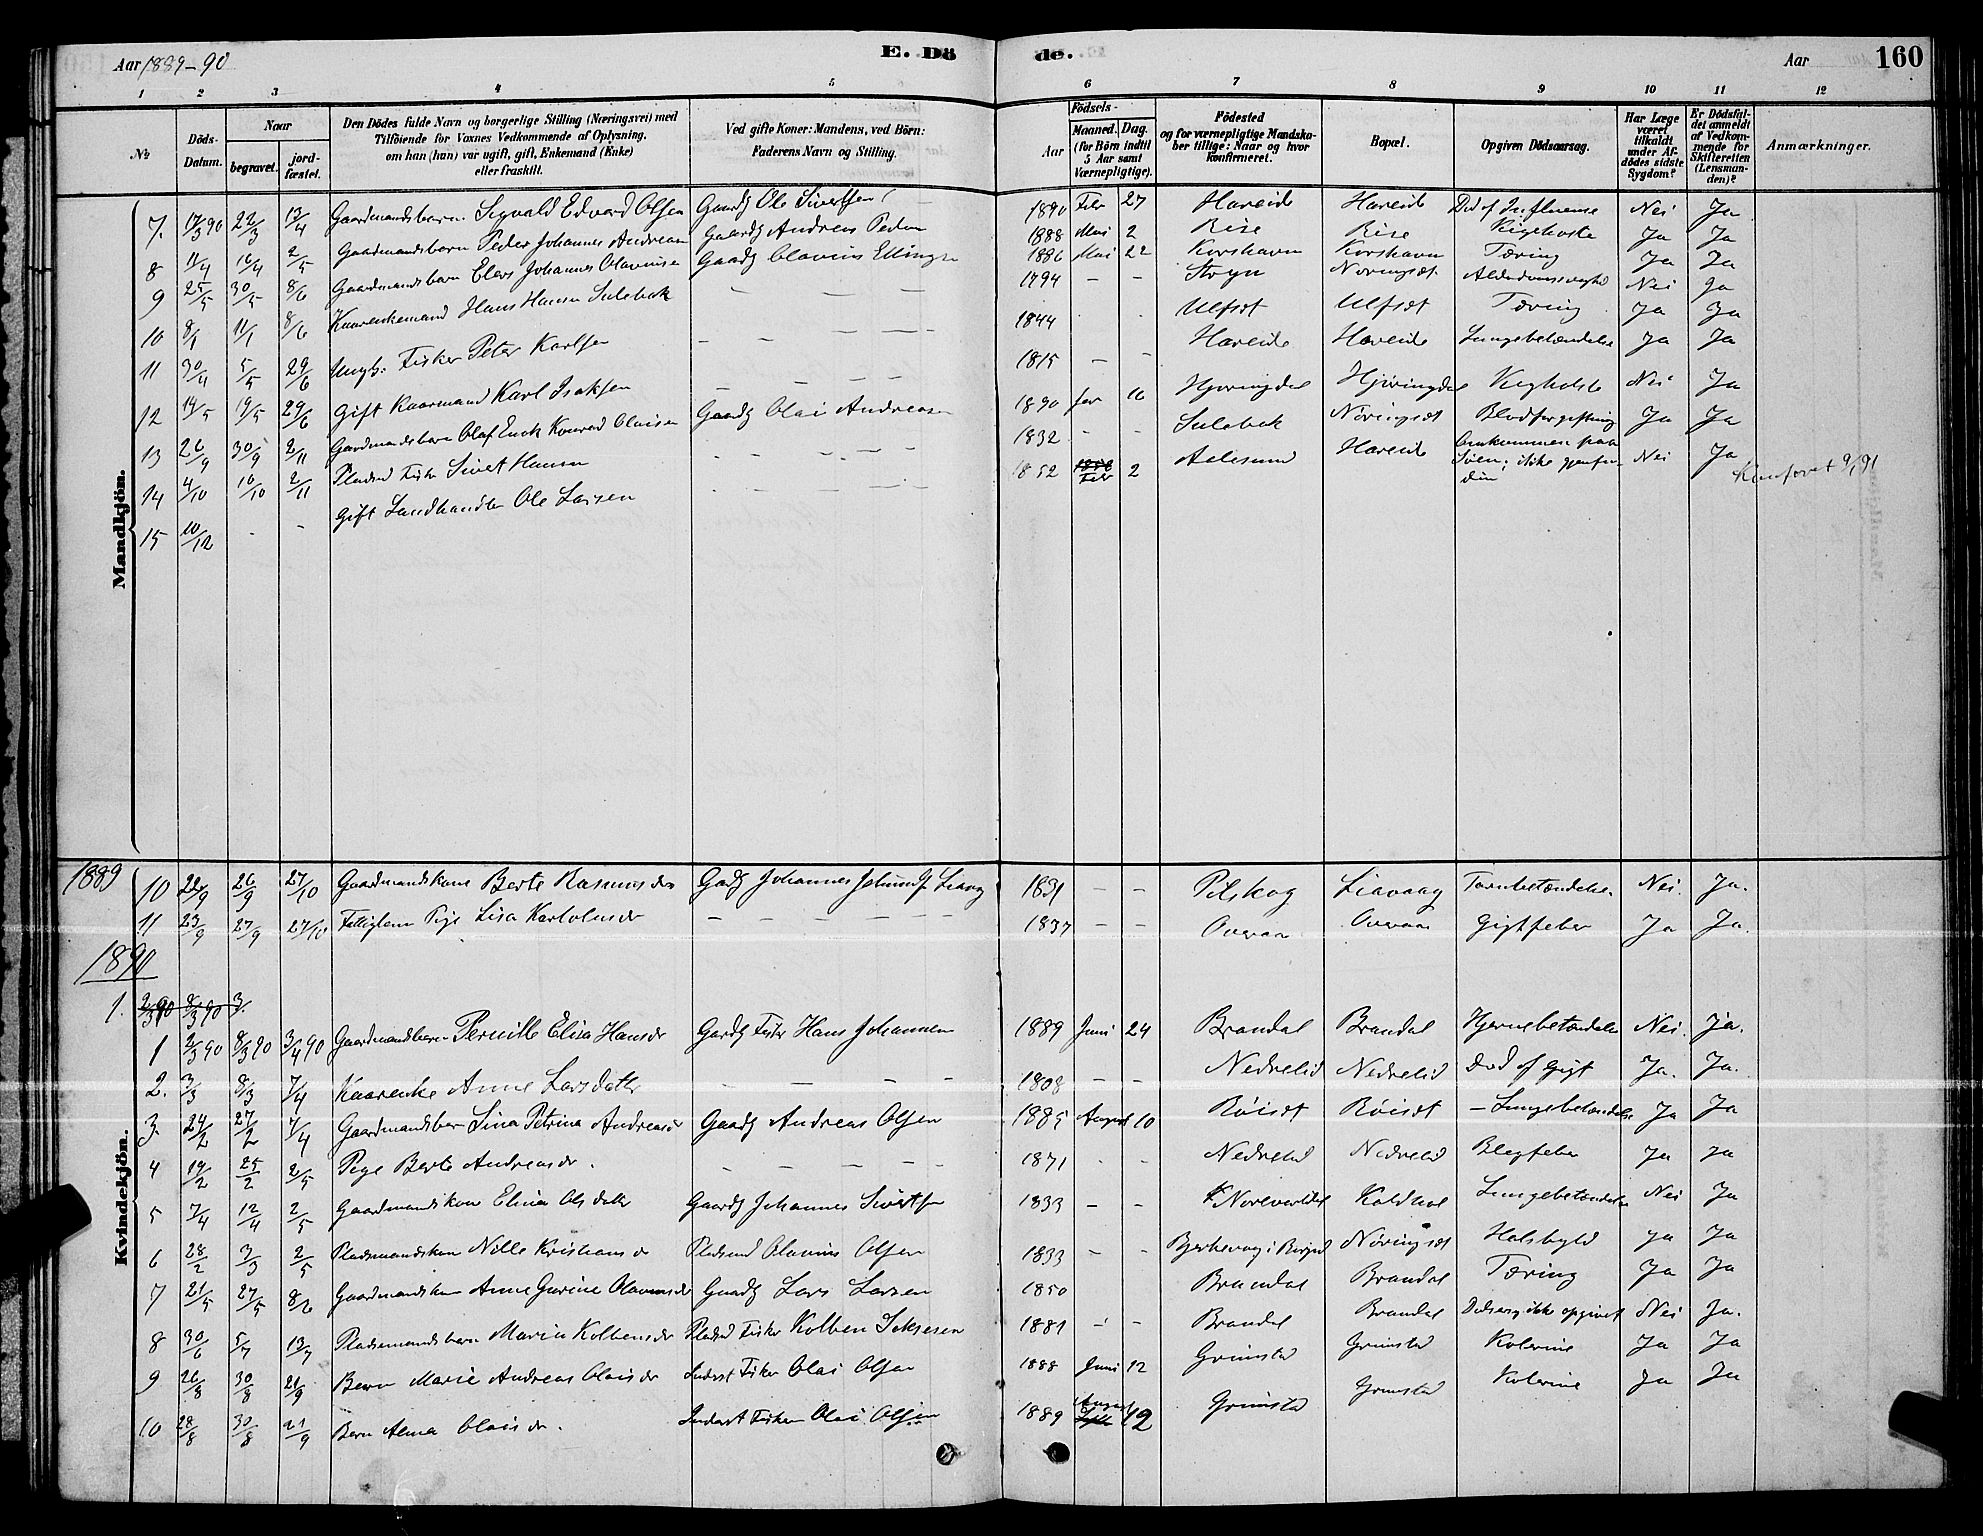 Aar 1889-90 E. Dö de. Aar 160
1 2 3 4 5 6 7 8 9 10 11 12
№ Döds-Datum. Naar begravet. jord-fæstet. Den Dödes fulde Navn og borgerlige Stilling (Næringsvei) med Tilföiende for Voxnes Vedkommende af Oplysning, om han (hun) var ugift, gift, Enkemand (Enke) eller fraskilt. Ved gifte Koner: Mandens, ved Börn: Faderens Navn og Stilling. Födsels- Aar Maaned. Dag. (for Börn indtil 5 Aar samt Værnepligtige). Födested og for værnepligtige Mandskaber tillige: Naar og hvor konfirmeret. Bopæl. Opgiven Dödsaarsag. Har Læge været tilkaldt under Afdödes sidste Sygdom? Er Dödsfaldet anmeldt af Vedkommende for Skifteretten (Lensmanden)? Anmærkninger.
Mandkjön.
7. 17/3 90 22/3 13/4 Gaardmandsbarn Sigvald Edvard Olsen Gaardg Ole Sivertsen 1890 Febr 27 Hareide Hareide Död af Influensa Nei Ja
8 11/4 16/4 2/5 Gaardmandsbarn Peder Johannes Andreasen Gaardg Andreas Peders 1888 Mai 2 Rise Rise Kighoste Ja Ja
9 25/5 30/5 8/6 Gaardmandsbarn Elias Johannes Olavius Gaardg Olavius Ellingsen 1886 Mai 22 Korshavn Korshavn Tæring Ja Ja
10 8/1 11/1 8/6 Kaarenkemand Hans Hansen Sulebak — — — 1794 — — Stryn Nöringsæt Alderdomssvaghed Nei Ja
11 30/4 5/5 29/6 Ungk. Fisker Peter Karlsen — — — 1844 Ulfsæt Ulfsæt Tæring Ja Ja
12 14/5 19/5 29/6 Gift Kaarmand Karl Isaksen — — — — 1815 — — Hareide Hareide Lungebetændelse Ja Ja
13 26/9 30/9 2/11 Gardmandsbarn Olaf Enok Konrad Olaisen Gaardg Olai Andreasen 1890 Jan 16 Hjöringdal Hjöringdal Kighoste Nei Ja
14 4/10 10/10 2/11 Pladsmd Fisk. Sivert Hansen 1832 - - Sulebak Nöringsæt Blodforgiftning Ja Ja
15 10/12 - - Gift Landhandler Ole Larsen 1852 Febr 2 Aalesund Hareide Omkommen paa Söen; ikke gjenfunden Nei Ja 9/1 91
1889
Kvindekjön.
10 22/9 26/9 27/10 Gaardmandskone Berte Rasmusdr Gaardg Johannes Liavag 1831 — — Pilskog Liavaag Tarmbetændelse Nei. Ja.
11 23/9 27/9 27/10 Fattiglem Pige Lisa Karlolusdr — — — — — 1837 — — Overaa Overaa Gigtfeber Ja Ja.
1890
1. 2/3 90 8/3 90 3/
1 2/3 90 8/3 90 3/4 90 Gaardmandsbarn Pernille Elisa Hansdr Gardg Fisk Hans Johannesen 1889 Juni 24 Brandal Brandal Hjernebetændelse Nei. Ja.
2. 3/3 8/3 7/4 Kaarenke Anne Larsdatter — — — — 1808 — — Nedrelid Nedrelid död af Gigt Ja. Ja.
3. 24/2 27/2 7/4 Gaardmandsbarn Lina Petrina Andreasdr Gaardg Andreas Olsen 1885 August 10 Röisæt Röisæt — Lungebetændelse Ja Ja
4 19/2 25/2 2/5 Pige Berte Andreasdr. — — — — 1871 - - Nedrelid Nedrelid Blegfeber Ja Ja
5 7/4 12/4 2/5 Gaardmandskone Elina Olsdatter Gaardg Johannes Sivertsen 1833 - - Koldhol Lungebetændelse Nei Ja
6 28/2 3/3 2/5 Pladsmandskone Nille Kristiansdr Pladsmd Olavius Olsen 1833 — — Bjerkevog i Nöringsæt Halsbyld Ja Ja
7 21/5 27/5 8/6 Gaardmandskone Anne Gurine Olaviusdr Gaardg Lars Larsen 1850 Brandal Brandal Tæring Ja Ja
8 30/6 5/7 13/7 Pladsemandsbarn Marie Kolbensdr Pladsmd Fisker Kolben 1881 - - Brandal Brandal Dödsaarsag ikke opgivet Nei Ja.
9 26/8 30/8 21/9 Barn Marie Andreas Olaisdr Inderst Fisker Olai Olsen 1888 Juni 12 Grimstad Grimstad Kolerine Ja Ja
10 28/8 30/8 21/9 Barn Alma Olaisdr. Inderst Fisker Olai Olsen 1889 August 12 Grimstad Grimstad Kolerine Ja Ja